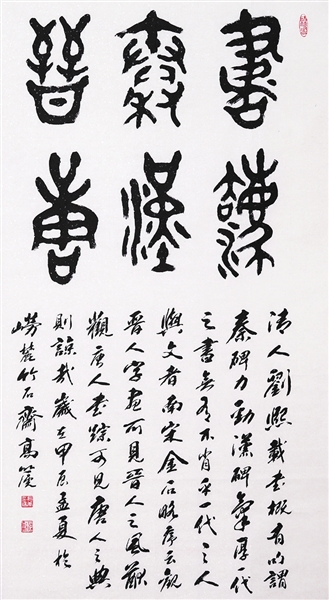 書
秦漢
晉唐
清人劉熙載書概有所謂
秦碑力勁漢碑氣厚一代
之書無有不肖乎一代之人
與文者南宋金石略序云觀
晉人字畫可見晉人之風猷
觀唐人書蹤可見唐人之典
則諒哉歲在甲辰孟夏於
嶗麓竹石齋高